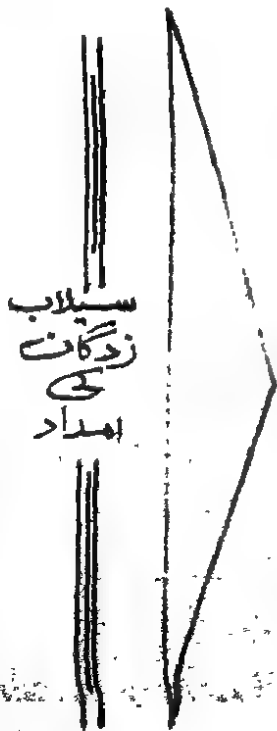 سیلاب
زدگان
کی
امداد